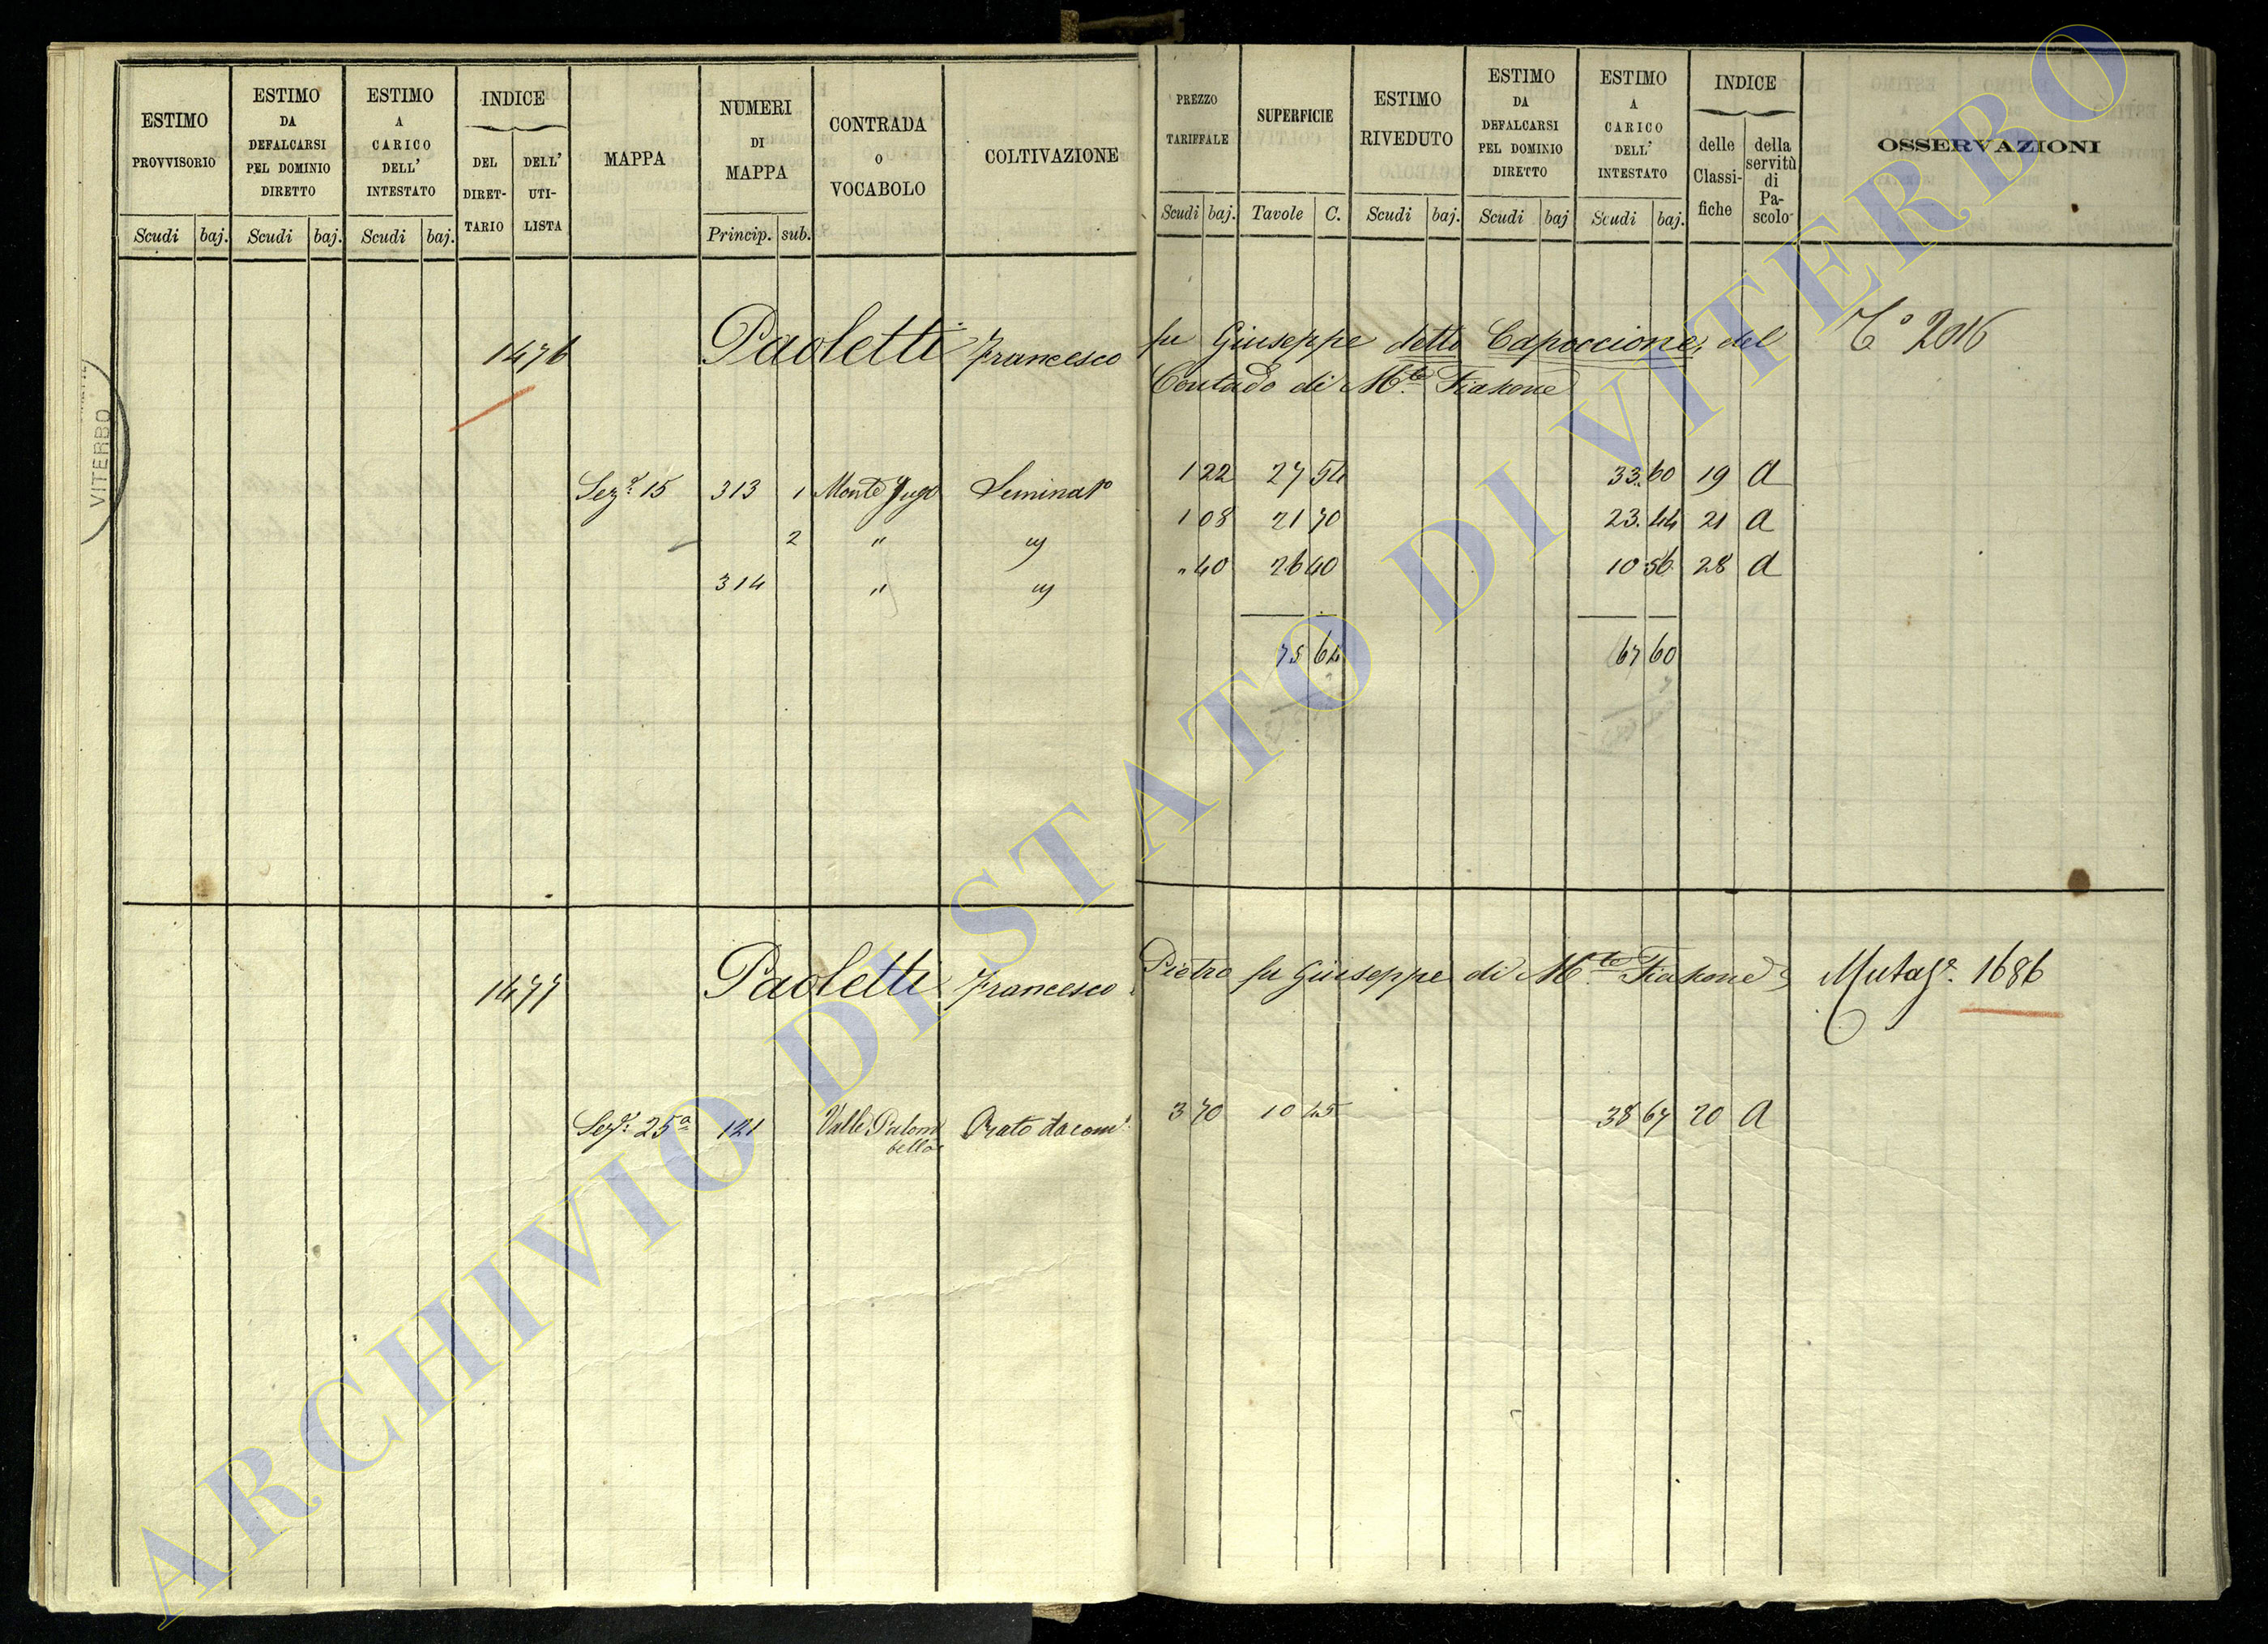 ESTIMO PROVVISORIO
ESTIMO DA DEFALCARSI PEL DOMINIO DIRETTO
ESTIMO A CARICO DELL' INTESTATO
INDICE
DEL DIRET-TARIO
DELL' UTI-LISTA
MAPPA
NUMERI DI MAPPA
CONTRADA O VOCABOLO
COLTIVAZIONE
PREZZO TARIFFALE
SUPERFICIE
ESTIMO RIVEDUTO
ESTIMO DA DEFALCARSI PEL DOMINIO DIRETTO
ESTIMO A CARICO DELL' INTESTATO
INDICE
delle Classi-fiche
della servitù di Pa-scolo
OSSERVAZIONI
Scudi baj. Scudi baj. Scudi baj. Princip. sub. Scudi baj. Tavole C. Scudi baj. Scudi baj Scudi baj.
1476 Paoletti Francesco fu Giuseppe detto Capoccione, del T° 2016
Contado di M.te Fiascone
Sez.e 15 313 1 Monte Jugo Seminat° 1 22 27 54 33.60 19 a
2 " " 1 08 21 70 23.44 21 a
314 " " " 40 26 40 10 56 28 a
75 64 67 60
1477 Paoletti Francesco Pietro fu Giuseppe di M.te Fiascone Mutaz.e 1686
Sez.e 25a 121 Valle Palom
bella Prato da com 3 70 10 45 38 67 20 a
VITERBO
ARCHIVIO DI STATO DI VITERBO